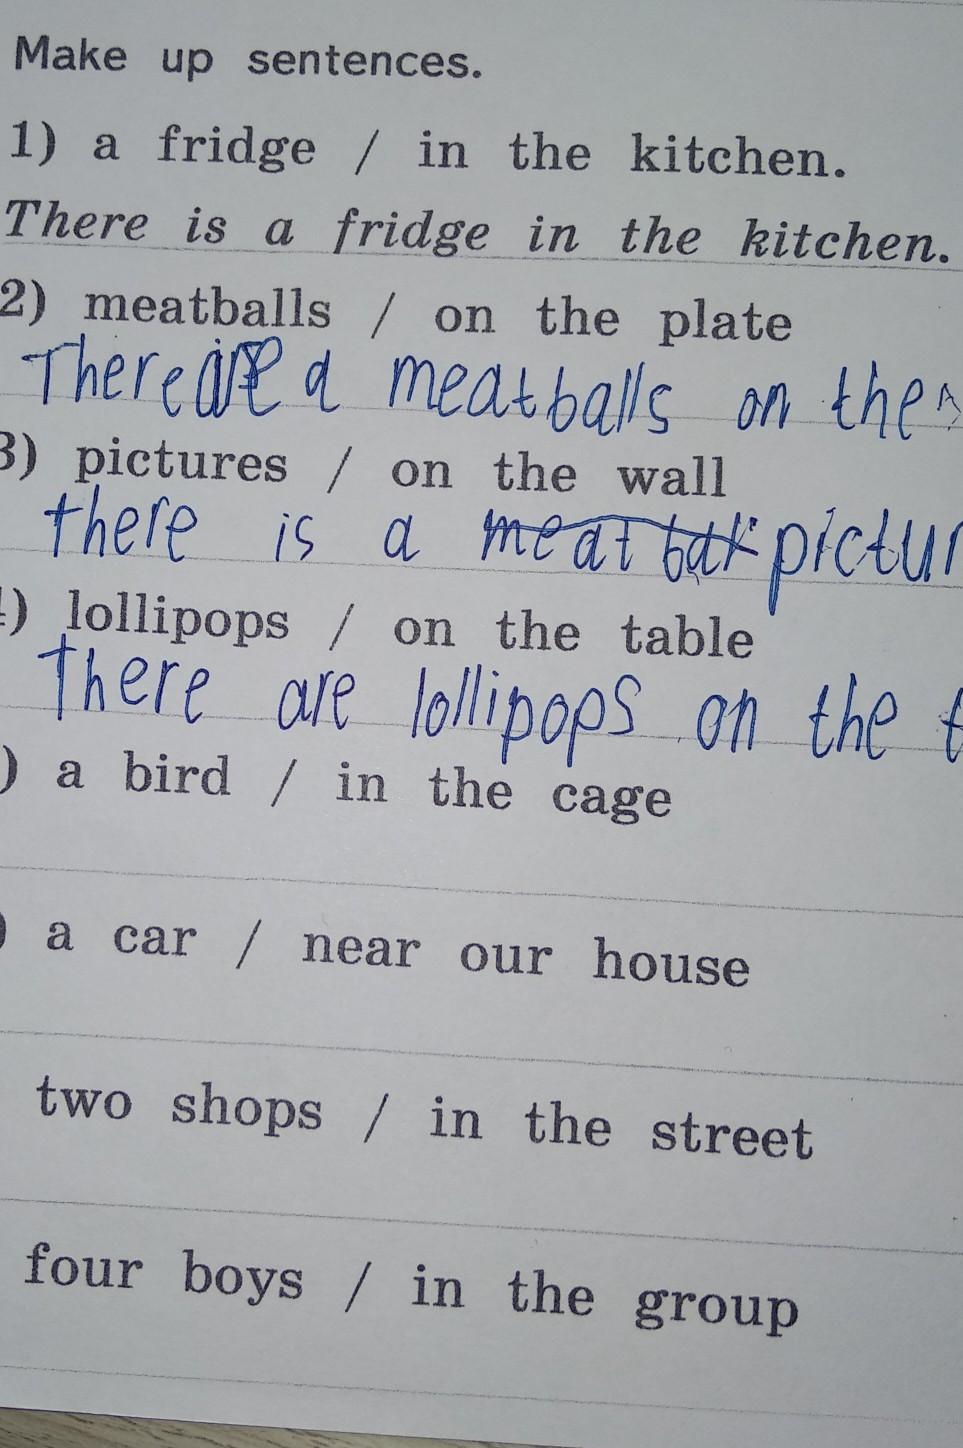 Make up sentences.
1) a fridge / in the kitchen.
There is a fridge in the kitchen.
2) meatballs / on the plate
There are a meatballs on the
3) pictures / on the wall
there is a pictur
) lollipops / on the table
There are lollipops on the t
) a bird / in the cage
) a car / near our house
two shops / in the street
four boys / in the group